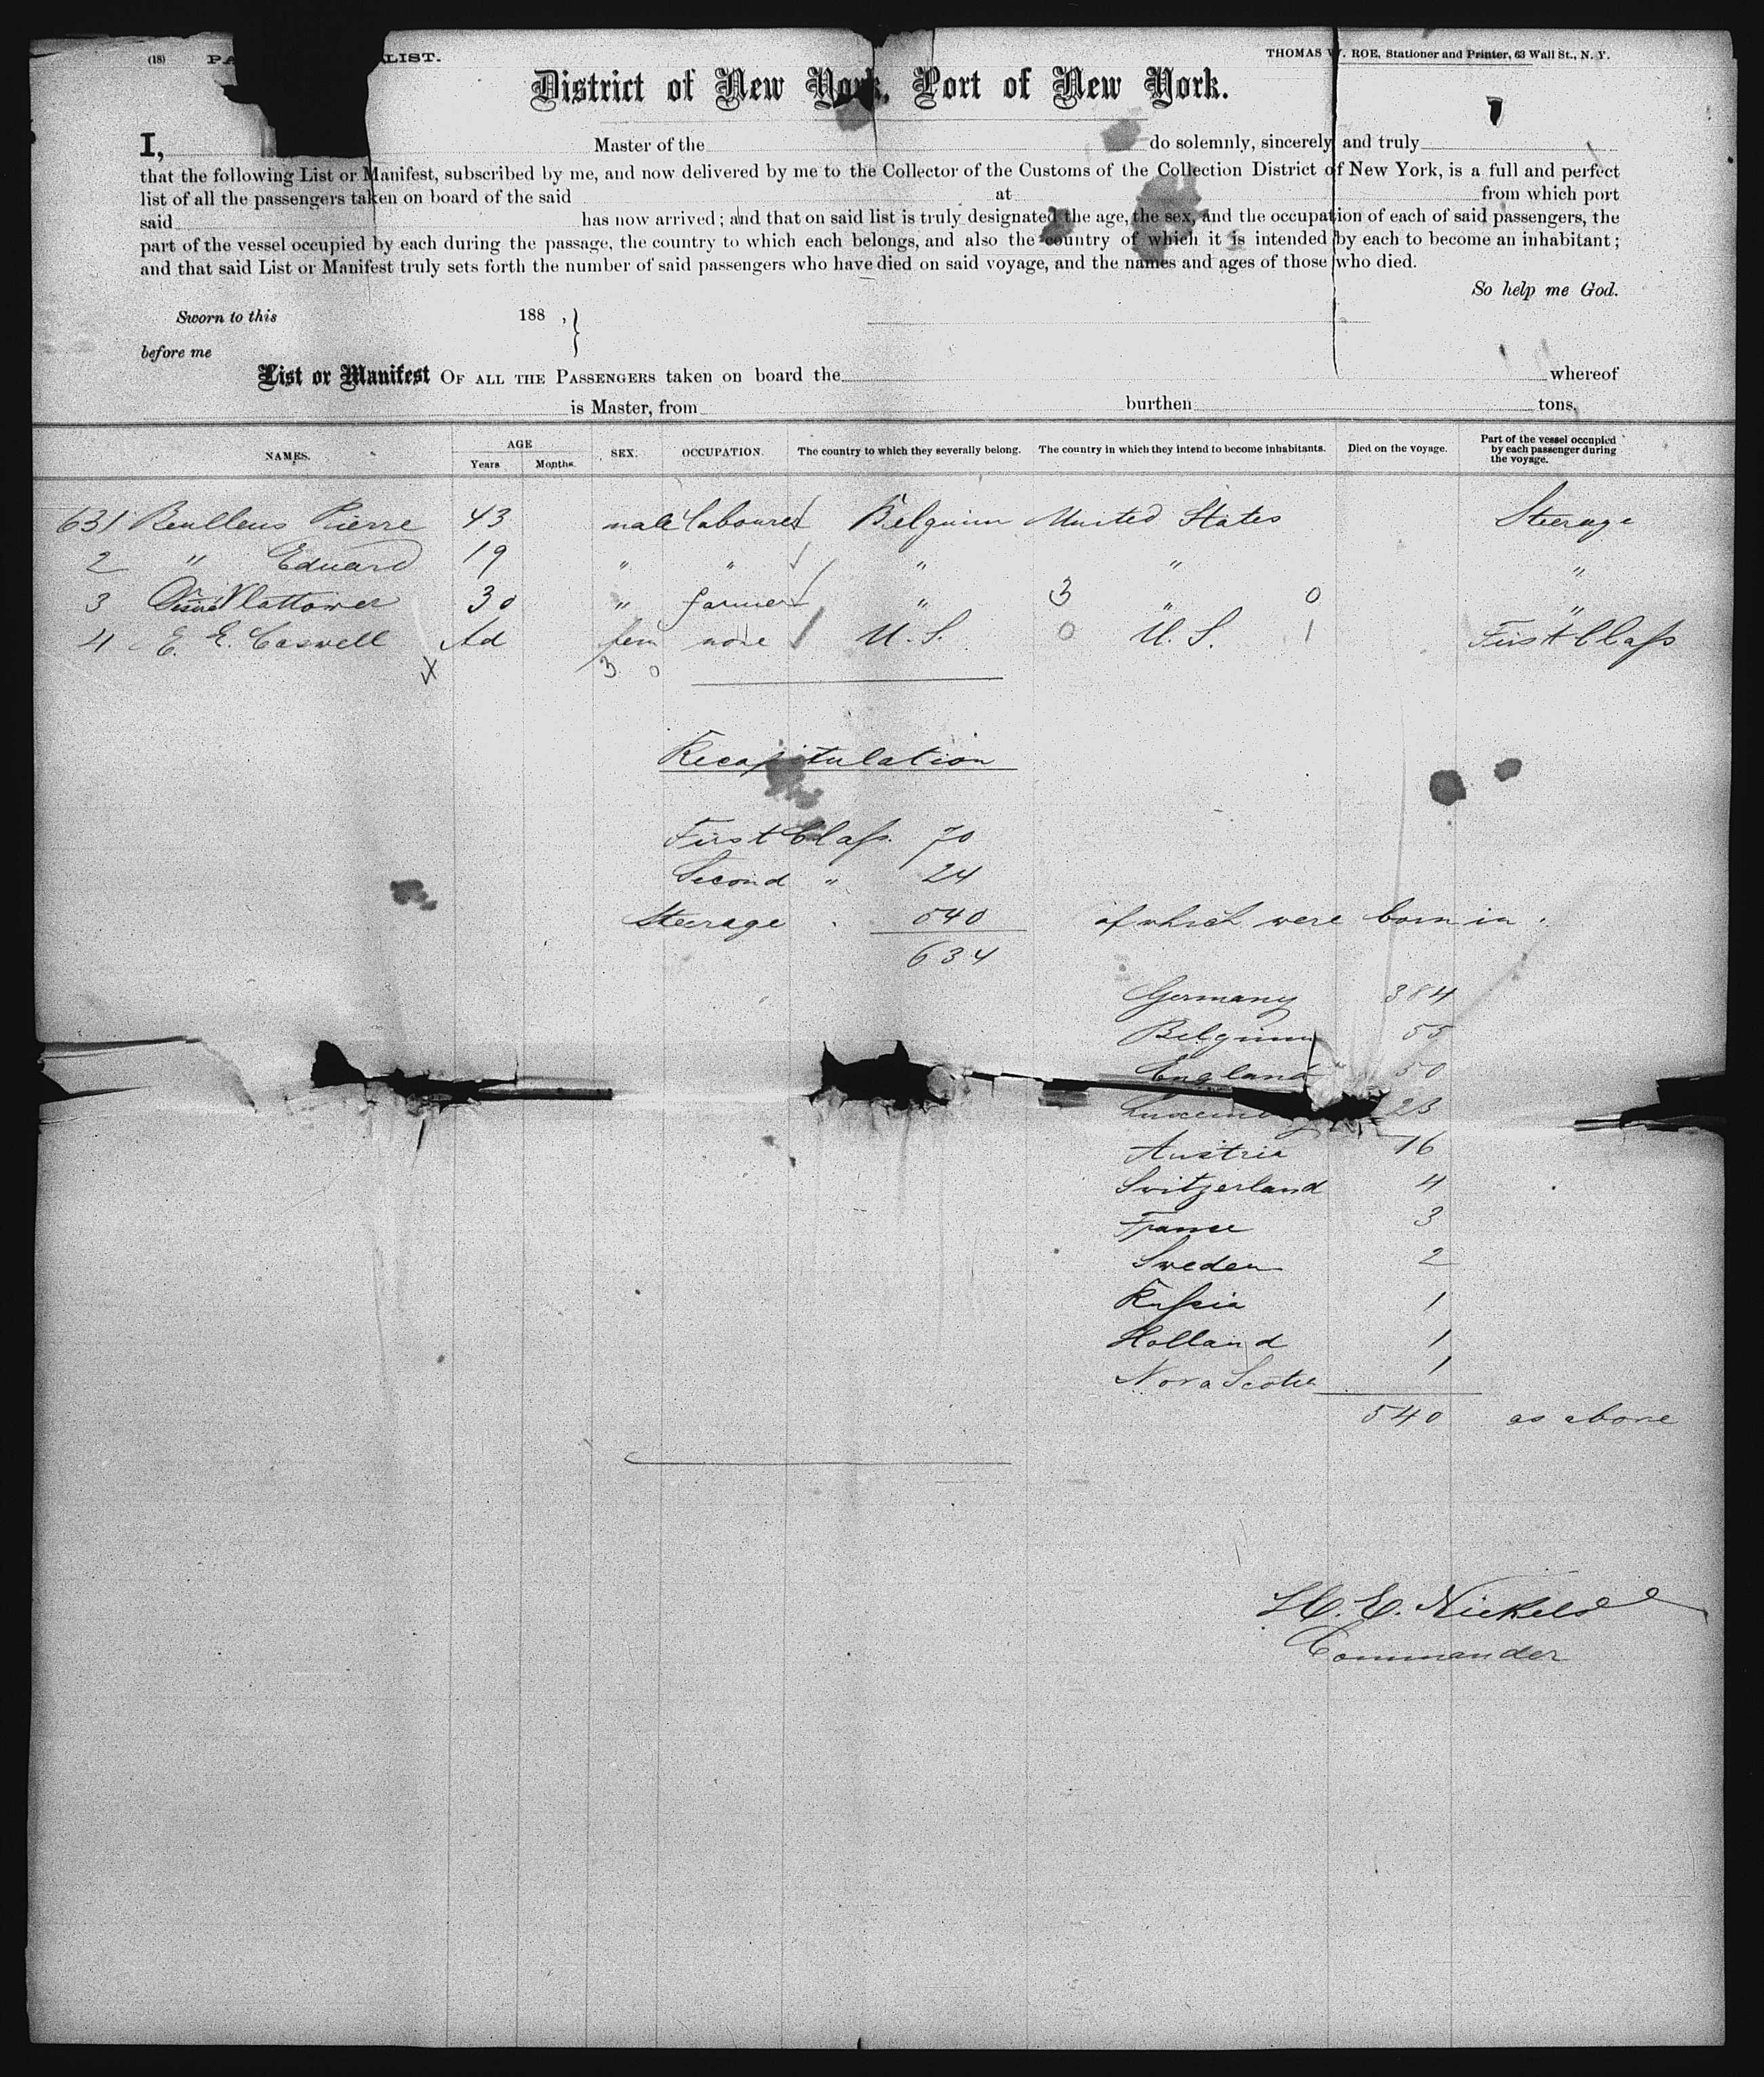 (18) LIST. THOMAS W. ROE, Stationer and Printer, 63 Wall St., N. Y.
District of New York, Port of New York.
I, Master of the do solemnly, sincerely and truly
that the following List or Manifest, subscribed by me, and now delivered by me to the Collector of the Customs of the Collection District of New York, is a full and perfect
list of all the passengers taken on board of the said at from which port
said has now arrived; and that on said list is truly designated the age, the sex, and the occupation of each of said passengers, the
part of the vessel occupied by each during the passage, the country to which each belongs, and also the country of which it is intended by each to become an inhabitant;
and that said List or Manifest truly sets forth the number of said passengers who have died on said voyage, and the names and ages of those who died.
So help me God.
Sworn to this 188 , }
before me
List or Manifest OF ALL THE PASSENGERS taken on board the whereof
is Master, from burthen tons.
NAMES. AGE Years Months. SEX. OCCUPATION. The country to which they severally belong. The country in which they intend to become inhabitants. Died on the voyage. Part of the vessel occupied by each passenger during the voyage.
631 Beullens Pierre 43 male labourer Belgium United States Steerage
2 " Eduard 19 " " " " "
3 30 " farmer " 3 " 0 "
4 E. E. Caswell Ad fem none U. S. 0 U. S. 1 First Class
X 3 0
Recapitulation
First Class. 70
Second " 24
Steerage 540 of which were born in
634
Germany 384
Belgium 55
England 50
23
Austria 16
Switzerland 4
France 3
Sweden 2
Russia 1
Holland 1
Nova Scotia 1
540 as above
H. E. Nickels
Commander